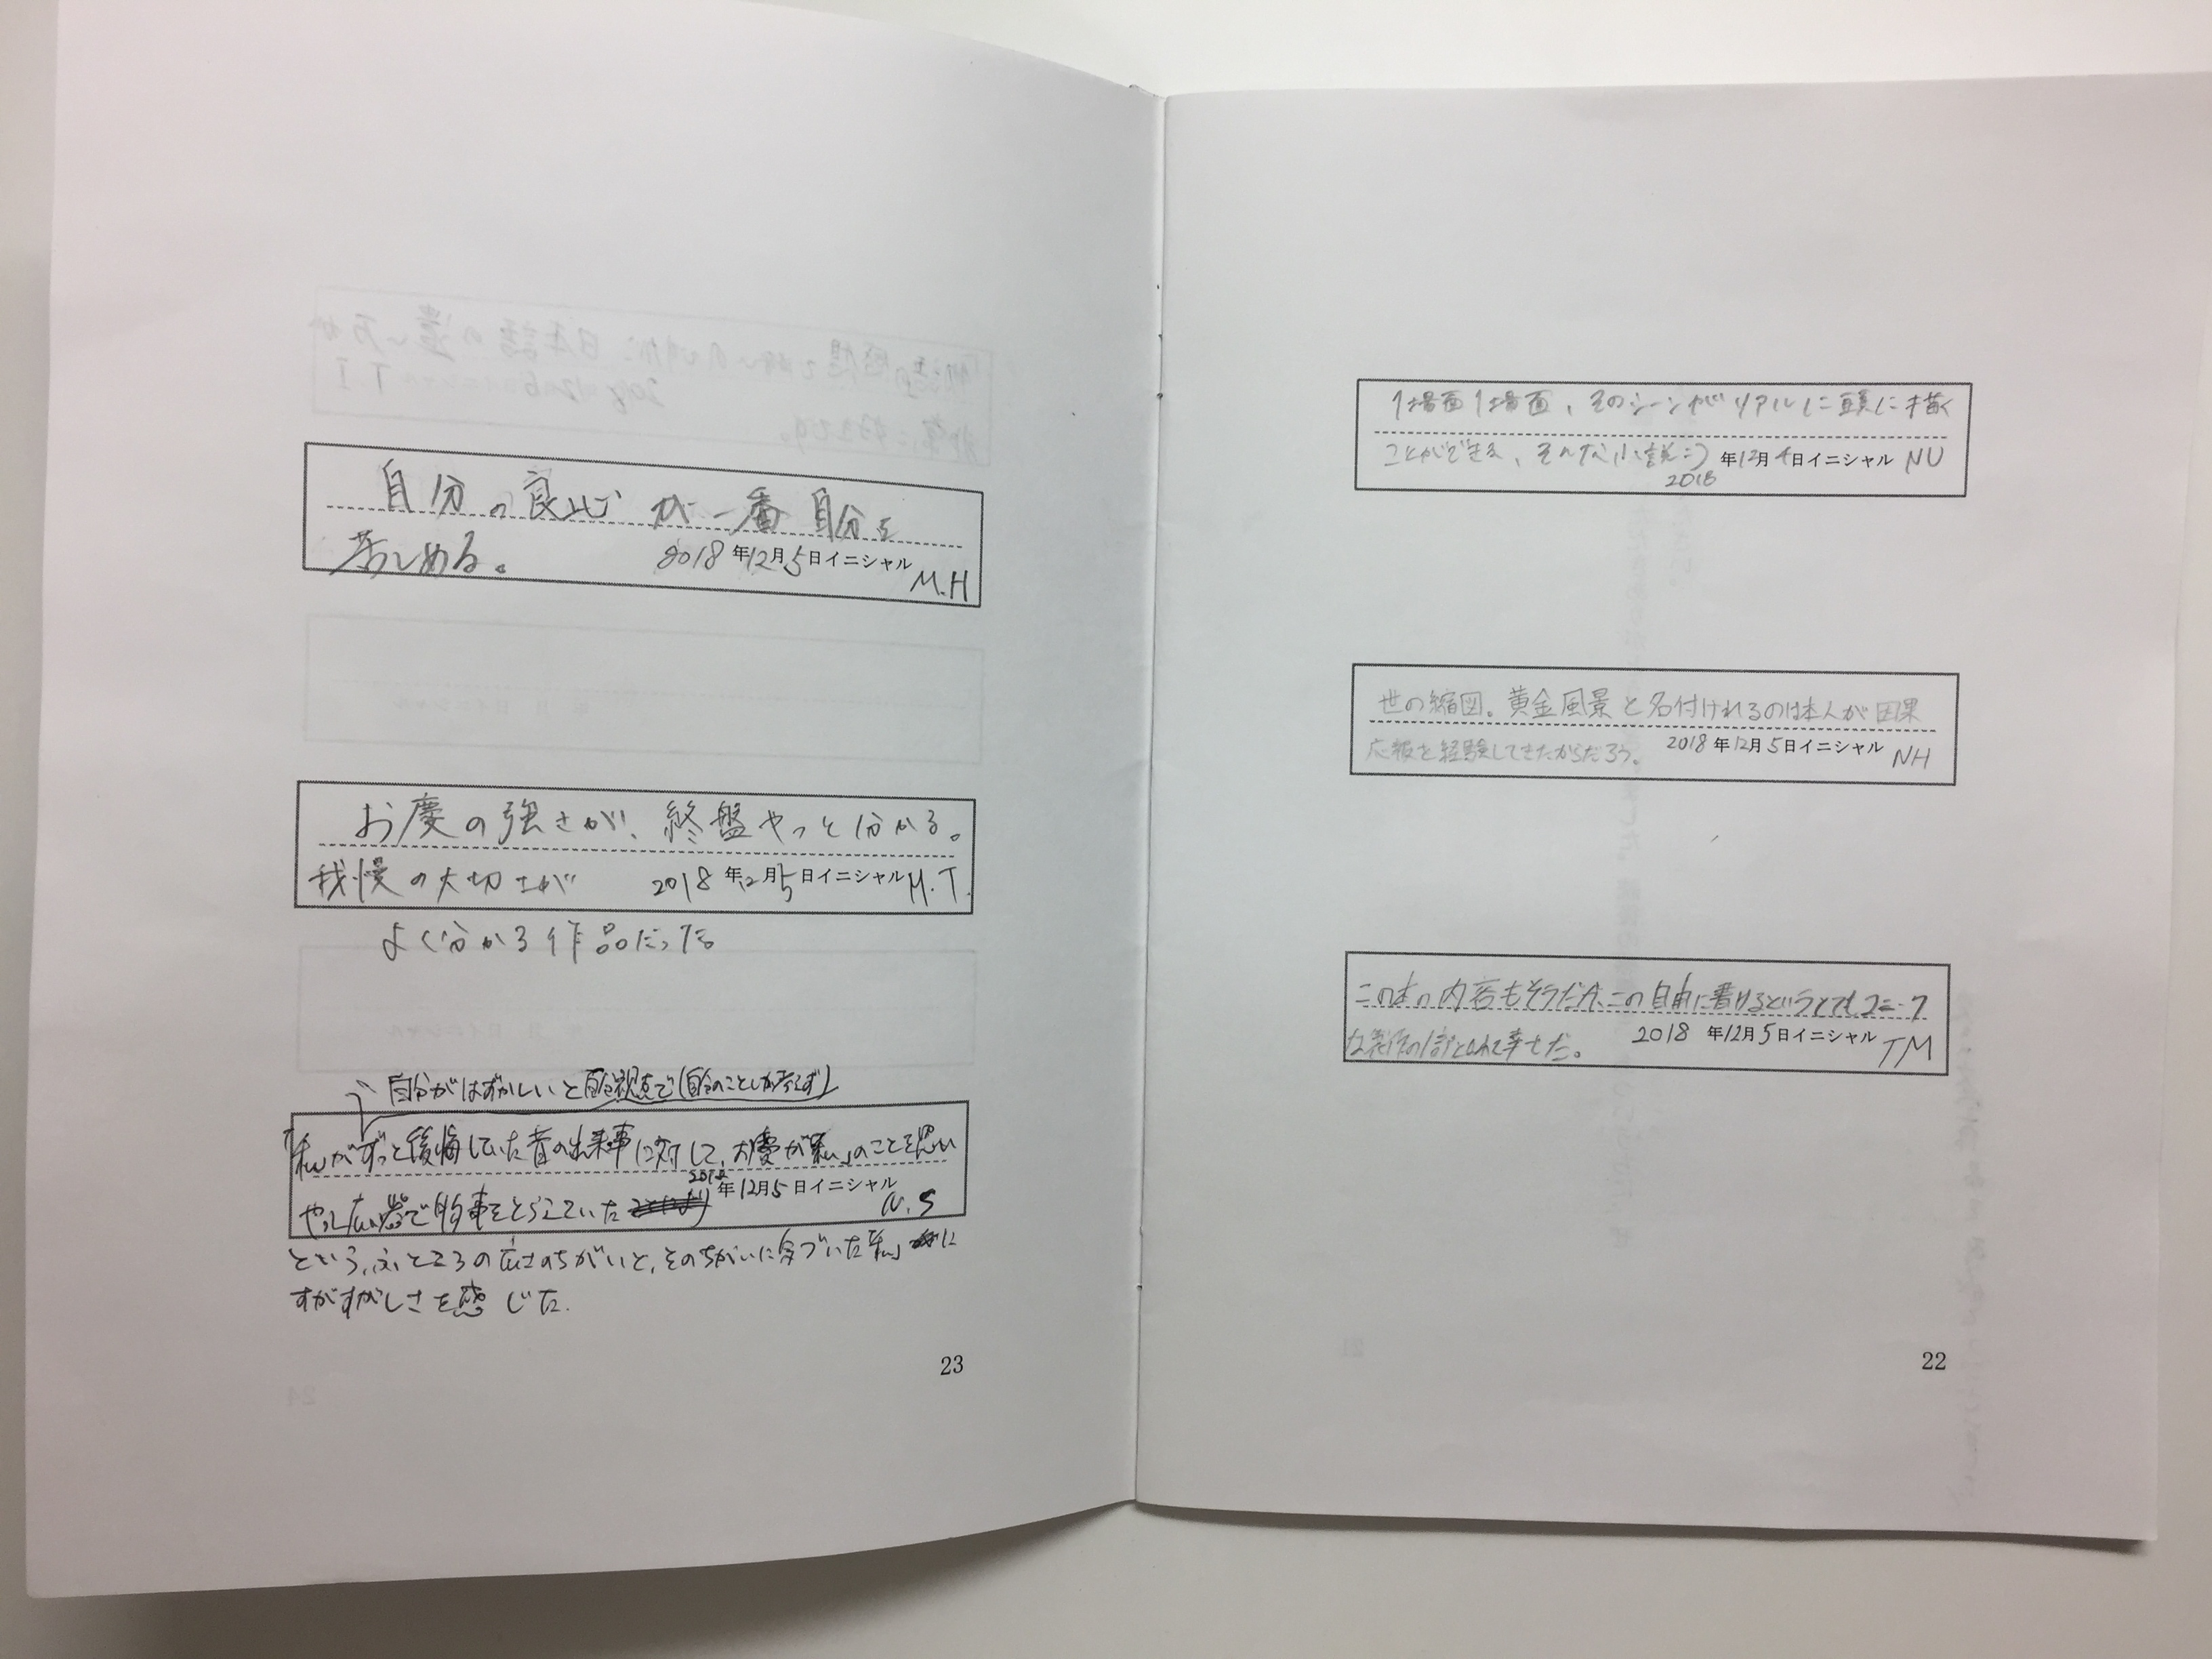 1場面1場面、そのシーンがリアルに頭に描く
ことができる、そんな小説:)
2018年12月4日イニシャル NU
世の縮図。黄金風景と名付けれるのは本人が因果
応報を経験してきたからだろう。 2018年12月5日イニシャル NH
この本の内容もそうだが、この自由に書けるというとてもユニーク
な 幸せだ。 2018年12月5日イニシャル TM
22
自分の良心が一番自分を
苦しめる。 2018年12月5日イニシャル M.H
お慶の強さが、終盤やっと分かる。
我慢の大切さが 2018年12月5日イニシャル M.T.
よく分かる作品だった
自分がはずかしいと自分視点で(自分のことしか考えず)
「私」がずっと後悔していた昔の出来事に対して、お慶が「私」のことを思い
やり広い 物事をとらえていた 年12月5日イニシャル N.S
という、ふところの広さのちがいと、そのちがいに気づいた「私」に
すがすがしさを感じた.
23